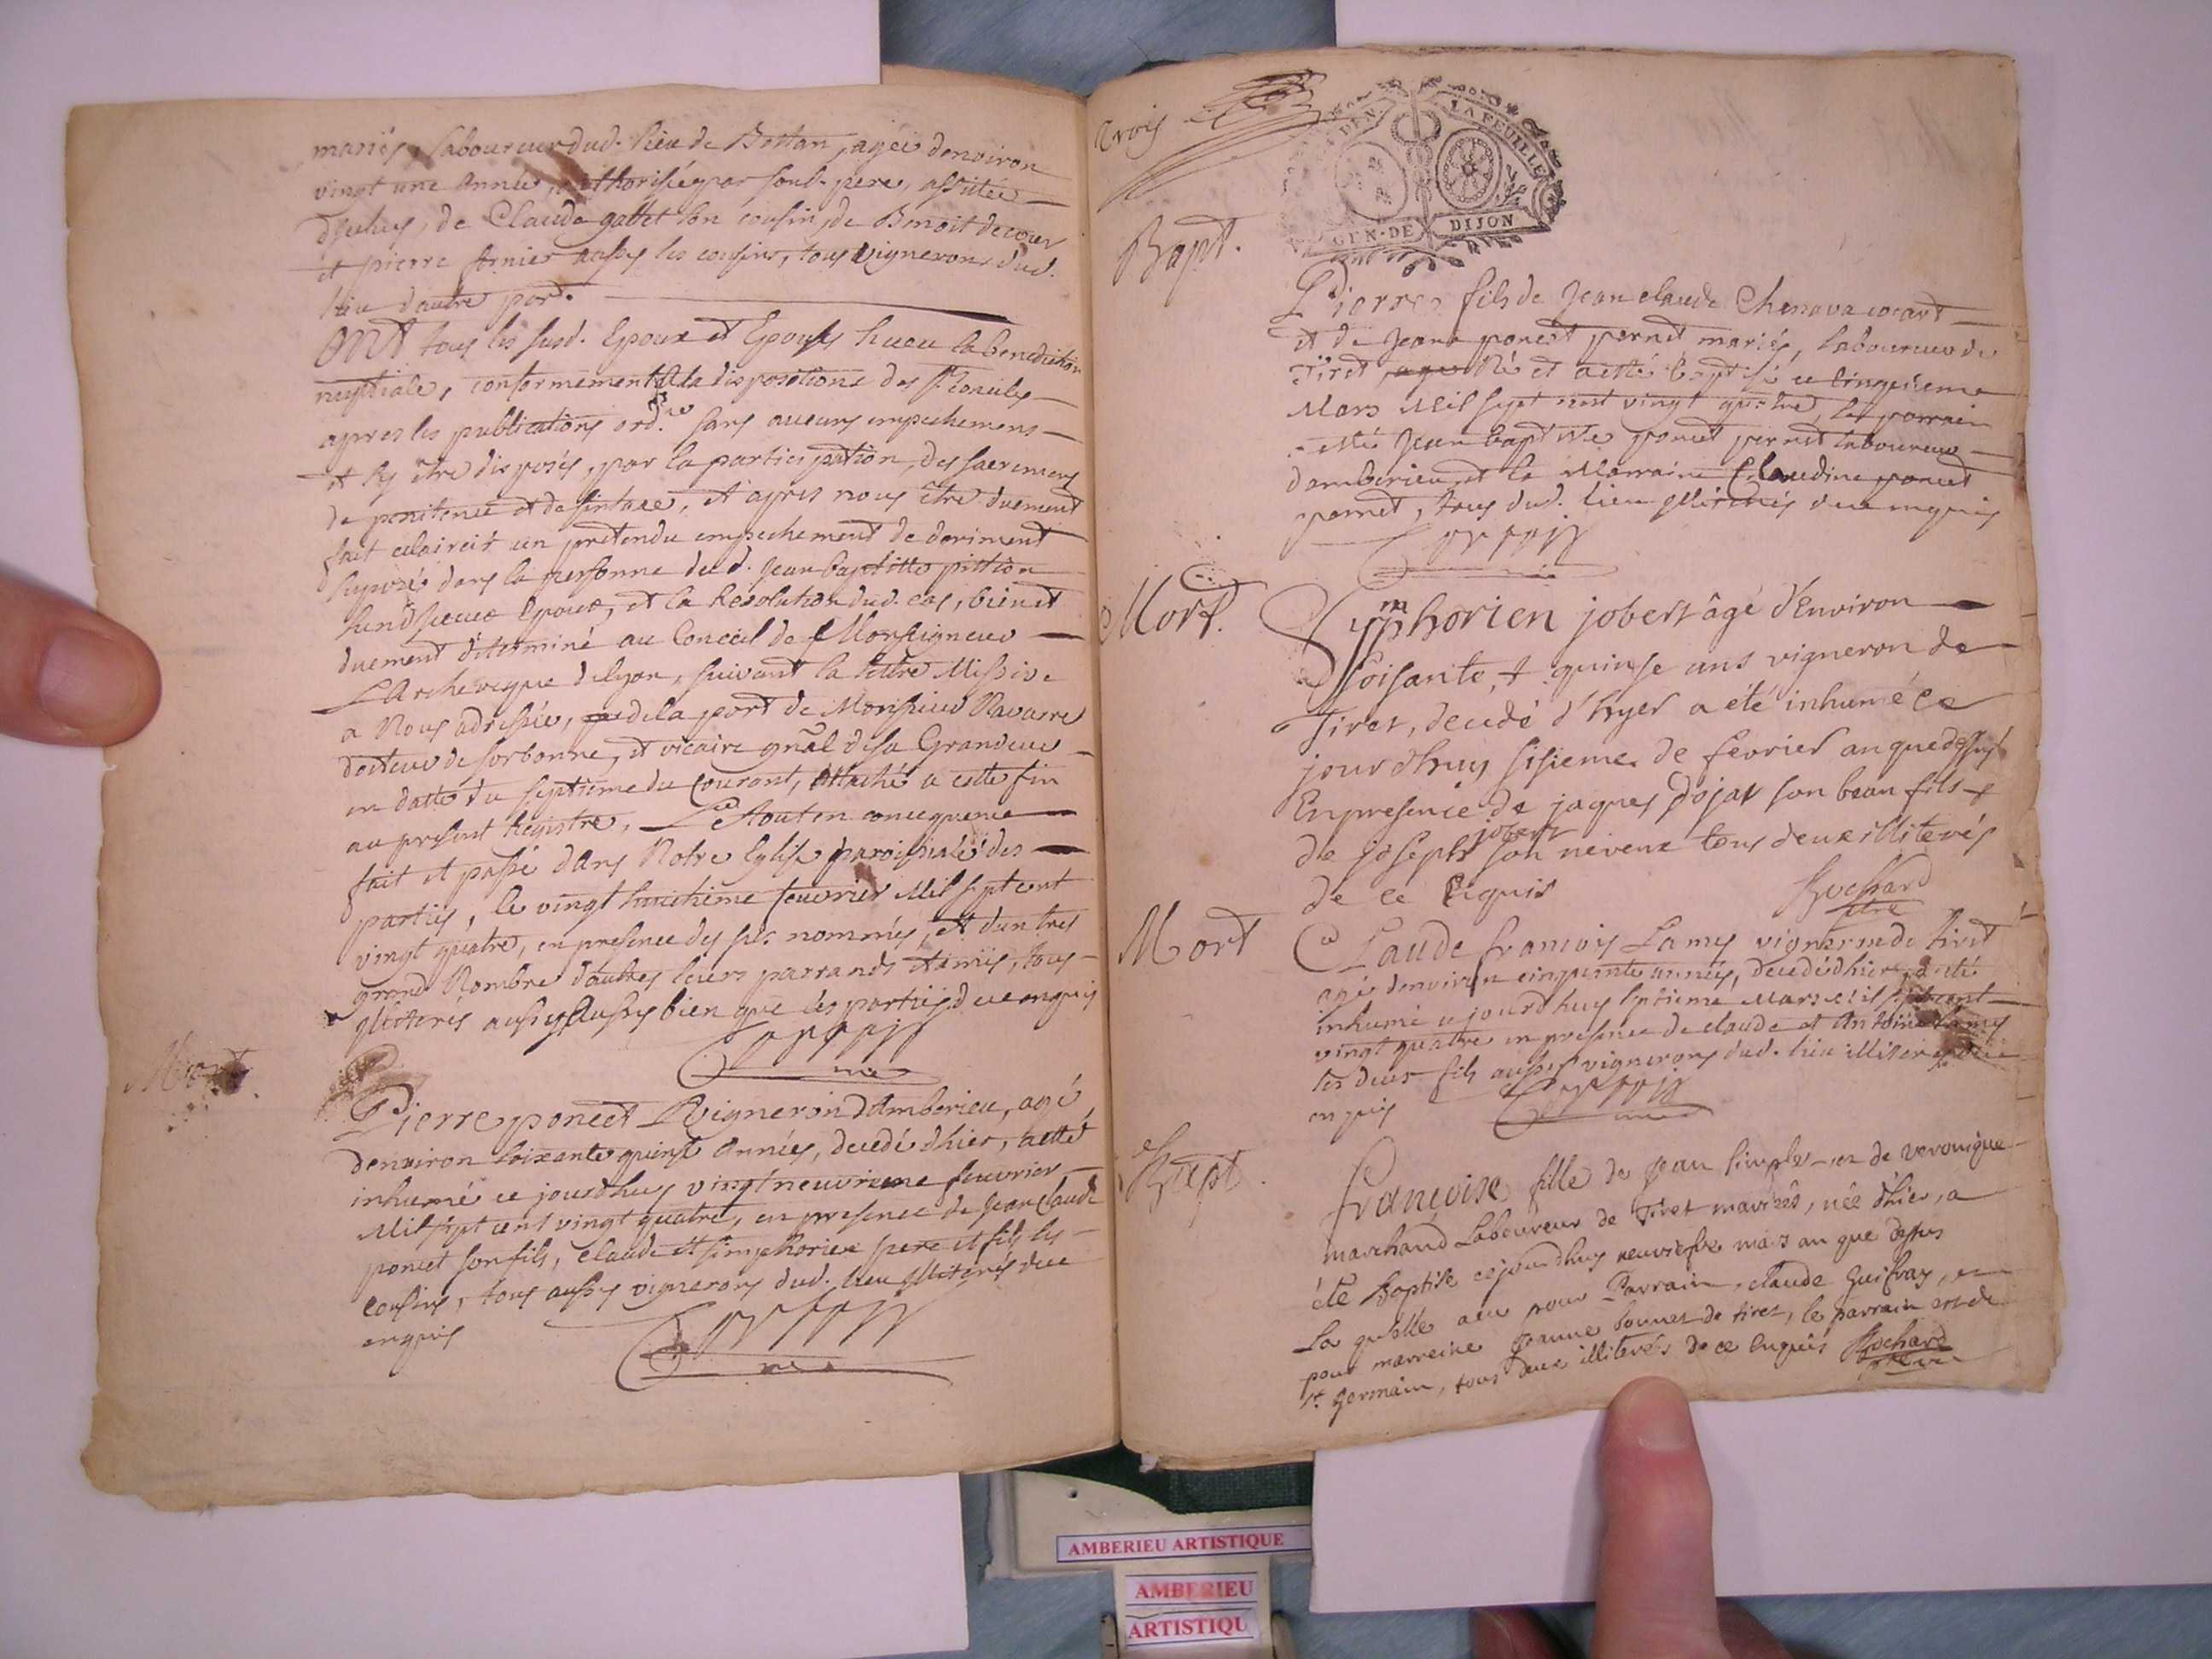 mariés, laboureur dud. lieu de Bettan, agée denviron
vingt une année, authorisée par soud. pere, assistée
diceluy, de Claude gabet son cousin, de Benoit decour
et pierre fornier aussy ses cousins, tous vignerons dud.
lieu dautre part.
Ont tous les susd. Epoux et Epouses heceu la benediction
nuptiale, conformement a la dispositions des Sts Conciles
apres les publications ordres sans aucuns empechemens
et sy être disposés, par la participation, des sacremens
de penitence et de , et apres nous être duement
fait eclaircir un pretendu empechement de deriment
suposés dans la personne dud. Jean baptiste pittion
lund. Epoux, et la Resolution dud. cas, bien et
duement determiné au Conceil de Monseigneur
LArcheveque de lyon, suivant la lettre Missive
a Nous adressée, de la part de Monsieur Navarre
docteur de sorbonne, et vicaire gnãl de sa Grandeur
en datte du septieme du Courant, Attaché a cette fin
au present Registre, Le tout en consequence
fait et passé dans Notre Eglise paroissiale des
parties, le vingt huictieme feuvrier Mil sept cent
vingt quatre, en presence des sus nommés, et dun tres
grand Nombre dautres leurs parrands et amis, tous
illiterés aussy bien que les parties de ce enquis
Mort.
Pierre poncet Vigneron dAmberieu, agé
denviron soixante quinse Années, decedé dhier, a etté
inhumé ce jourdhuy vingt neuvrieme feuvrier
Mil sept cent vingt quatre, en presence de Jean Claude
poncet son fils, Claude et simphorien pere et fils ses
cousins, tous aussy vignerons dud. lieu illiterés de ce
enquis
trois
GEN. DE DIJON
LA FEUILLE
Bapt.
Pierre fils de Jean claude Chenavacocart
et de Jeane poncet pernet mariés, laboureur de
Tiret, Né et a etté baptisé ce Cinquieme
Mars Mil sept cent vingt quatre, le parrain
a etté Jean baptiste poncet pernet laboureur
damberieu et la Marraine Claudine poncet
pernet, tous dud. lieu illiterés de ce enquis
Mort.
Symphorien jobert âgé d'Environ
soisante & quinse ans vigneron de
Tiret, decedé d'hyer a été inhumé ce
jourdhuy sisieme de fevrier an que dessus
En presence de jaques dojat son beau fils &
de joseph jobert son neveux tous deux illiterés
de ce Enquis
Rochard
ptre
Mort
Claude francois Lamy vigneron de tiret
agé denviron cinquante années, decedé dhier, a eté
inhumé ce jourdhuy septieme Mars Mil sept cent
vingt quatre en presence de claude et Antoine Lamy
ses deux fils aussy vignerons dud. lieu illiterés de ce
enquis
Bapt.
françoise fille de Jean simple et de veronique
marchand Laboureur de Tiret mariés, née d'hier, a
été Baptisé cejourdhuy neuvieme mars an que dessus
La quelle a eu pour Parrain, claude Guifray, et
pour marreine Jeanne bonnet de tiret, le parrain est de
st. Germain, tous deux illiterés de ce Enquis Rochard
ptre
AMBERIEU ARTISTIQUE
AMBERIEU
ARTISTIQU